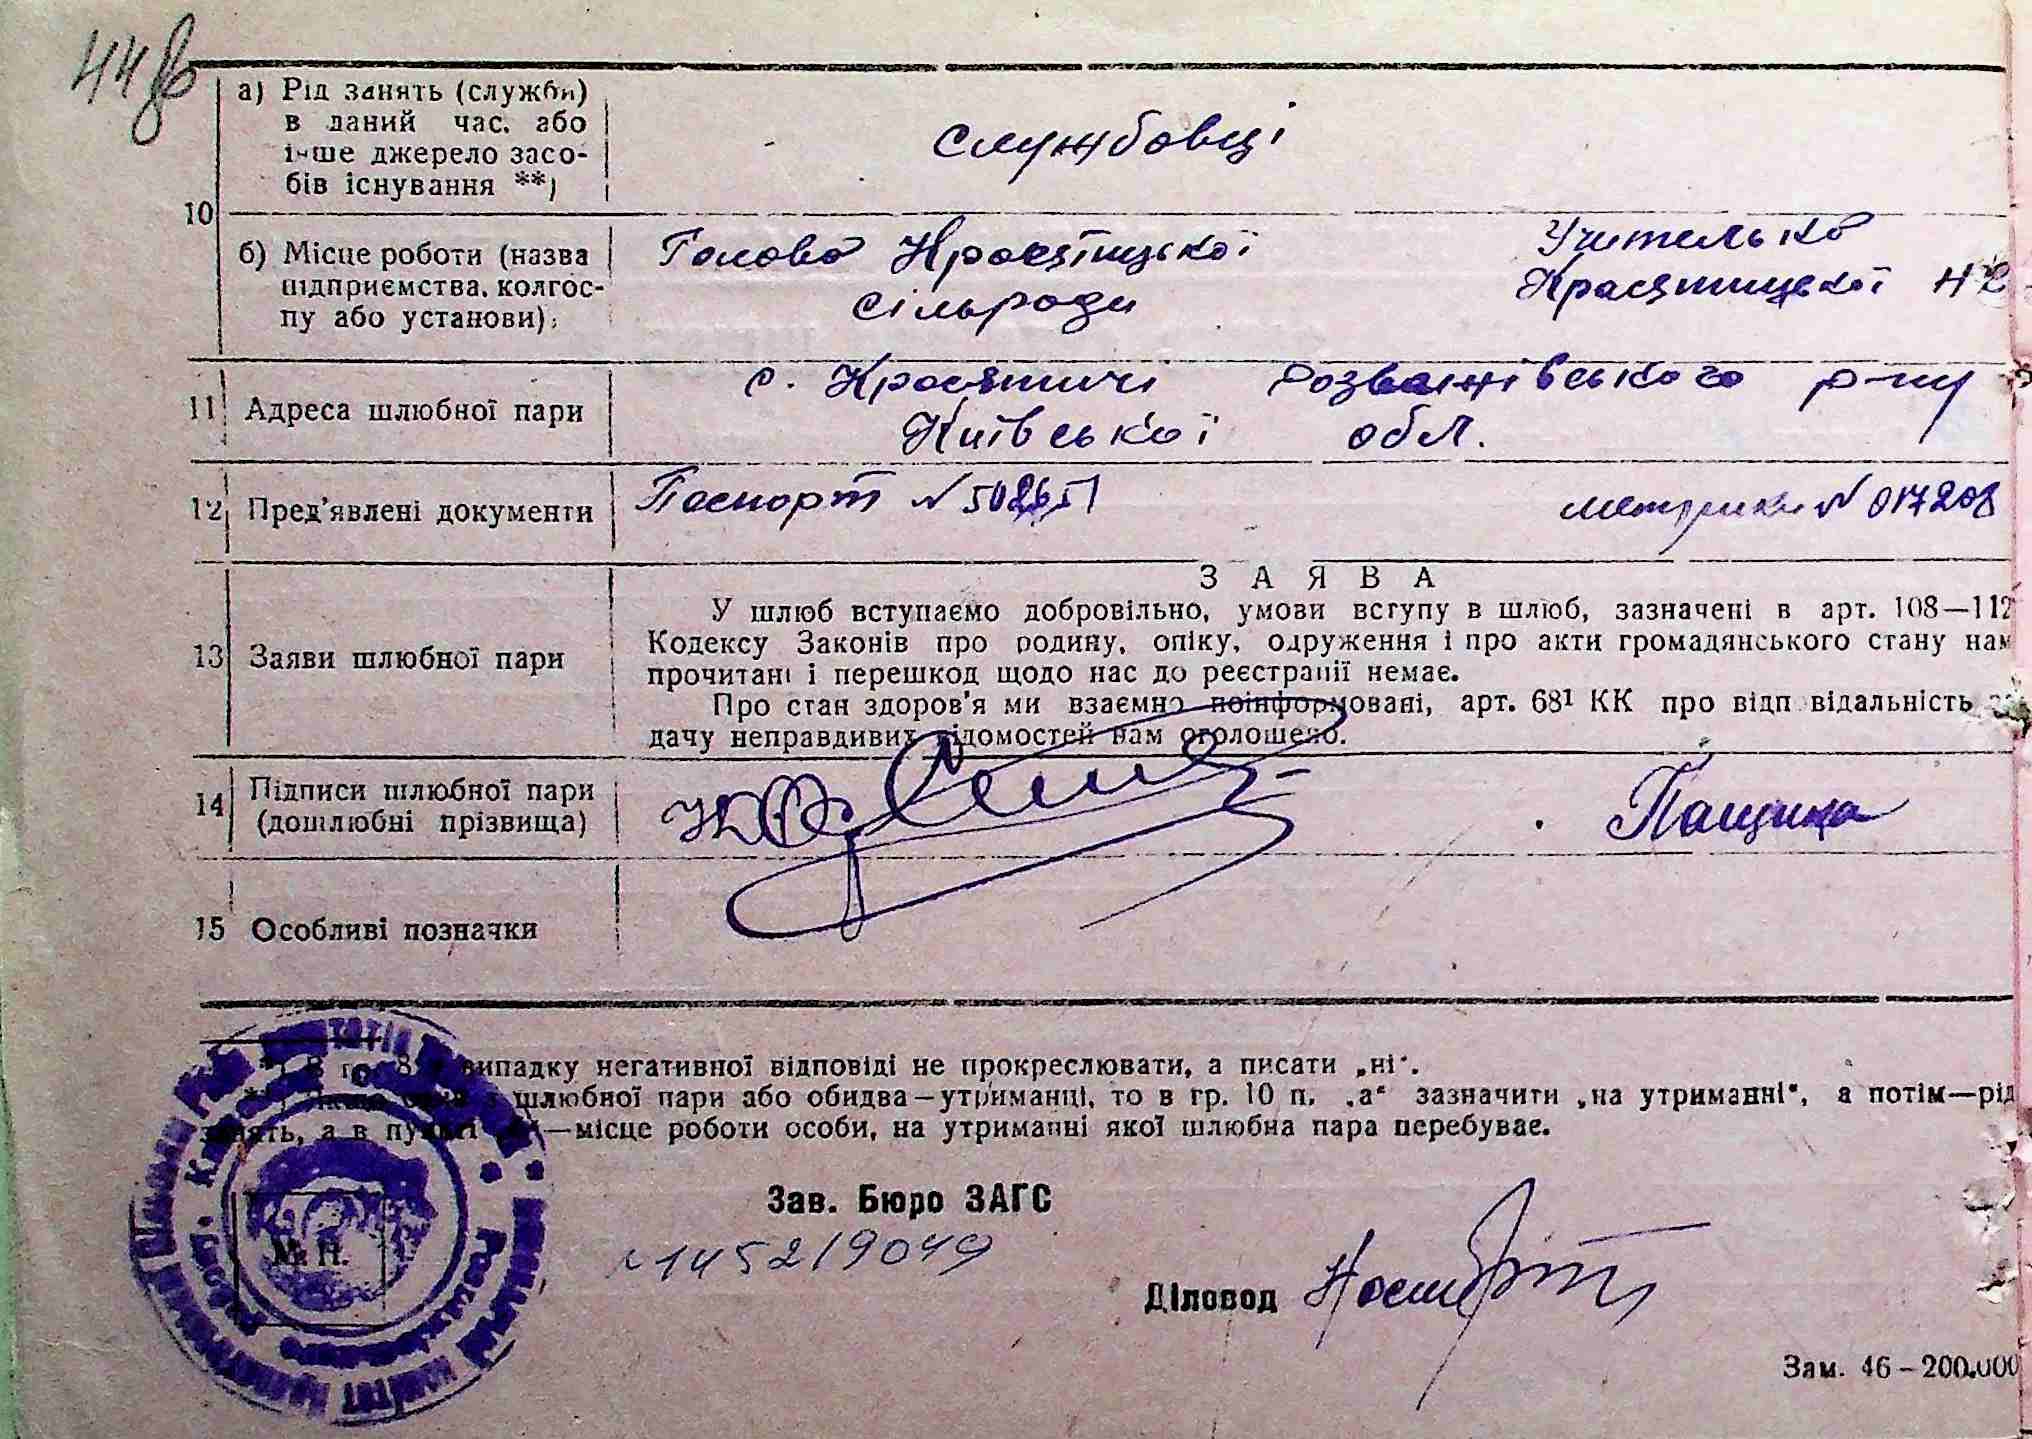 а) Рід занять (служби)
в даний час, або
інше джерело засо-
бів існування **)
службовці
10
б) Місце роботи (назва
підприємства, колгос-
пу або установи);
Голова Красятицької
сільради
Учителька
Красятицької
11 Адреса шлюбної пари
с. Красятичі Розважівського р-ну
Київської обл.
12 Пред'явлені документи
Паспорт N
метрики N 017208
13 Заяви шлюбної пари
ЗАЯВА
У шлюб вступаємо добровільно, умови вступу в шлюб, зазначені в арт. 108—112
Кодексу Законів про родину, опіку, одруження і про акти громадянського стану нам
прочитані і перешкод щодо нас до реєстрації немає.
Про стан здоров'я ми взаємно поінформовані, арт. 68¹ КК про відповідальність за
дачу неправдивих відомостей нам оголошено.
14 Підписи шлюбної пари
(дошлюбні прізвища)
Пащина
15 Особливі позначки
випадку негативної відповіді не прокреслювати, а писати „ні".
шлюбної пари або обидва—утриманці, то в гр. 10 п. „а" зазначити „на утриманні", а потім—рід
занять, а в пункті —місце роботи особи, на утриманні якої шлюбна пара перебуває.
М. П.
Зав. Бюро ЗАГС
Діловод
Зам. 46 – 200.000